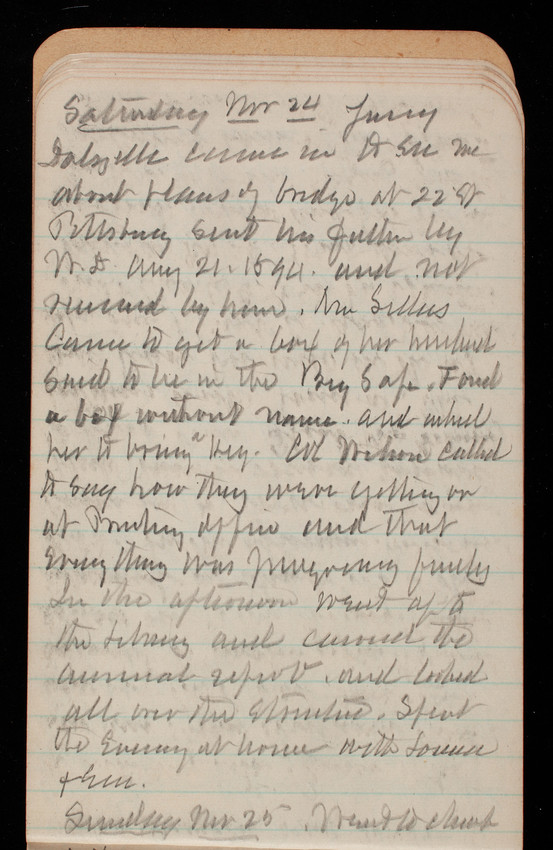 Saturday Nov 24 Jimmy
Dalzelle came in to see me
about plans of bridge at 22 St
Pittsburg sent his father by
W.D Aug 21. 1894. and not
received by him. Mrs
came to get a box of her husband
said to be in the Big Safe. Found
a box without name. and asked
her to bring a key. Col Wilson called
to say how they were getting on
at Printing office and that
everything was progressing finely
In the afternoon went up to
the Library and carried the
annual report. and looked
all over the structure. Spent
the Evening at home with Louise
& Gen.
Sunday Nov 25. Went to church